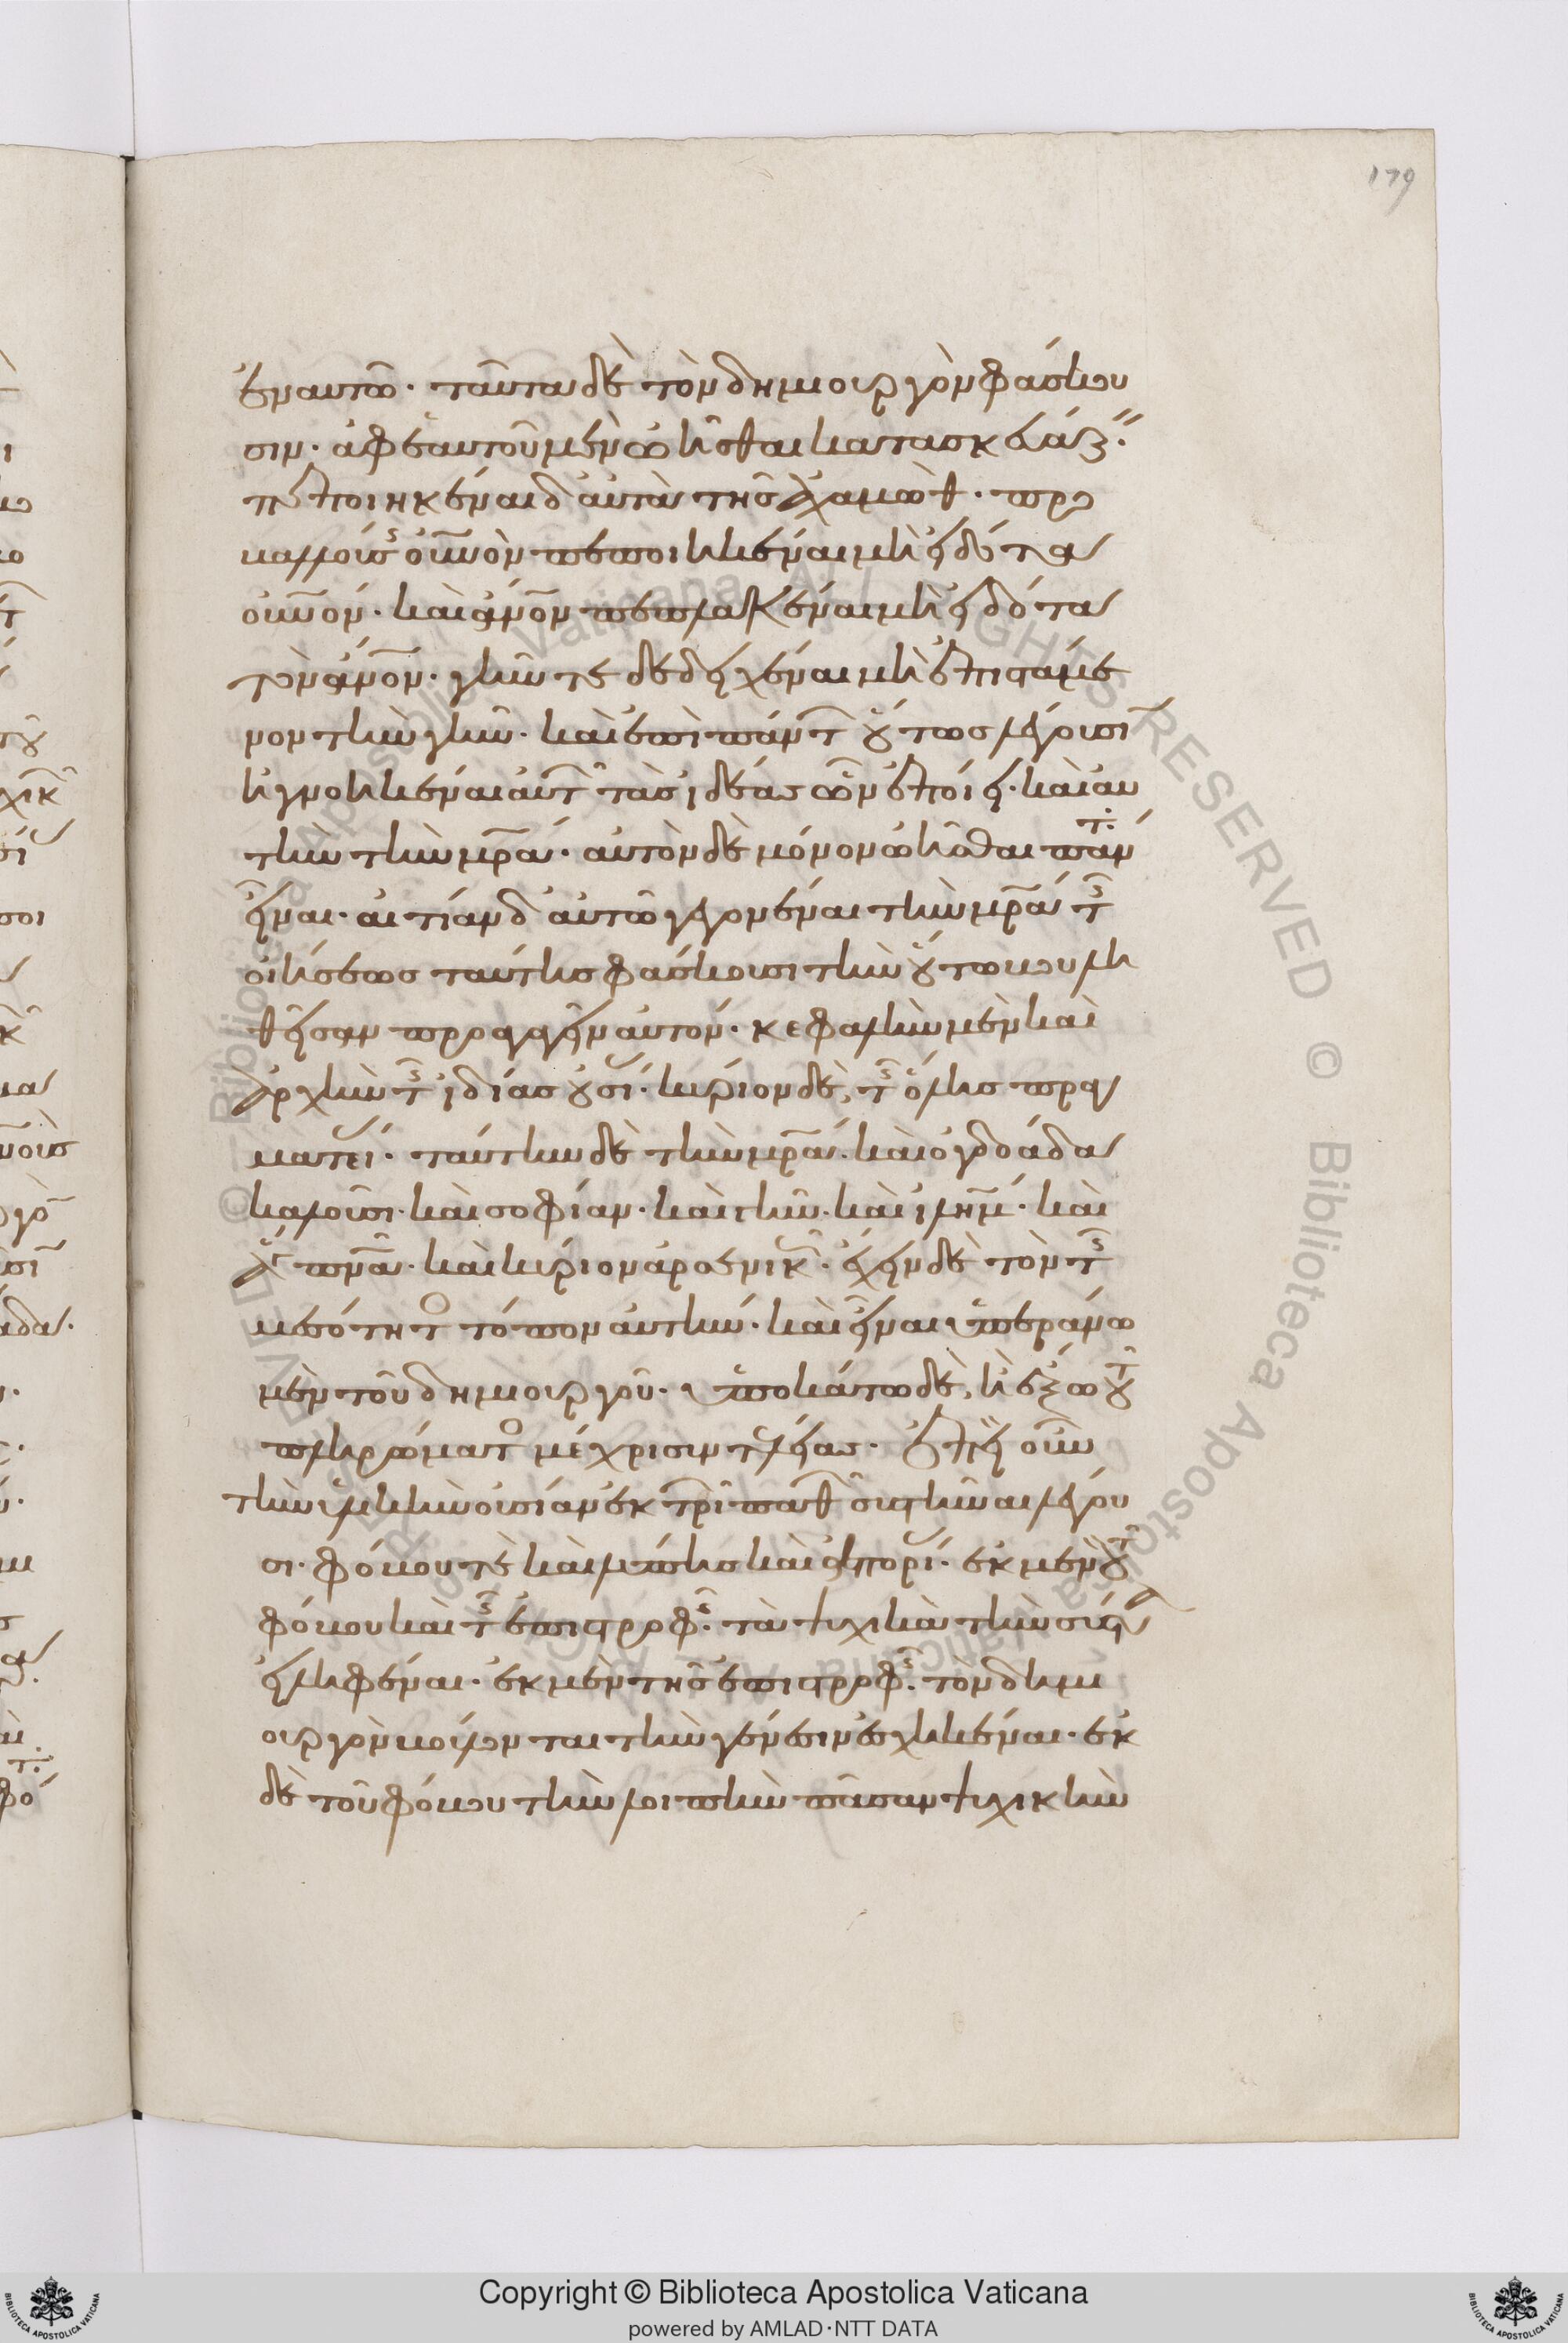 ἐν αὐτῶ. ταῦτα δὲ τὸν δημιουργὸν φάσκου
σιν. ἀφ ἑαυτοῦ μὲν ὠῆσθαι κατασκευάζειν
πεποιηκέναι δ αὐτὰ τῆς ἀχαμὼθ. προ
βαλλούσης οὐνὸν πεποιηκέναι μὴ εἰδότα
οὐνόν. καὶ ἄνον πεπλακέναι μὴ εἰδότα
τὸν ἄνον. γῆν τε δεδειχέναι μὴ ἐπιστάμε
νον τὴν γῆν. καὶ ἐπὶ πάντων οὕτως λέγουσιν
ἠγνοηκέναι αὐτὸν τὰς ἰδέας ὧν ἐποίει. καὶ αὐ
τὴν τὴν μρα. αὐτὸν δὲ μόνον ὠῆσθαι πάντα
εἶναι. αἰτίαν δ αὐτῶ γεγονέναι τὴν μρα τῆς
οἰήσεως ταύτης φάσκουσι τὴν οὕτω βουλη
θεῖσαν προαγαγεῖν αὐτόν. κεφαλὴν μὲν καὶ
ἀρχὴν τῆς ἰδίας οὐσίας. κύριον δὲ, τῆς ὅλης πραγ
ματείας. ταύτην δὲ τὴν μρα. καὶ ὀγδοάδα
καλοῦσι. καὶ σοφίαν. καὶ γῆν. καὶ ιλημ. καὶ
ἅγιον πνα. καὶ κύριον ἀρσενικῶς. ἔχειν δὲ τὸν τῆς
μεσότητος τόπον αὐτήν. καὶ εἶναι ὑπεράνω
μὲν τοῦ δημιουργοῦ. ὑποκάτω δὲ, ἢ ἔξω τοῦ
πληρώματος μέχρι συντελείας. ἐπεὶ οὖν
τὴν ὑλικὴν οὐσίαν ἐκ τριῶν παθῶν συστῆναι λέγου
σι. φόβου τὲ καὶ λύπης καὶ ἀπορίας. ἐκ μὲν τοῦ
φόβου καὶ τῆς ἐπιστροφῆς. τὰ ψυχικὰ τὴν σύστασιν
εἰληφέναι. ἐκ μὲν τῆς ἐπιστροφῆς. τὸν δημι
ουργὸν βούλονται τὴν γένεσιν ἐσχηκέναι. ἐκ
δὲ τοῦ φόβου τὴν λοιπὴν πᾶσαν ψυχικὴν
179
© Biblioteca Apostolica Vaticana ALL RIGHTS RESERVED © Biblioteca Apostolica Vaticana ALL RIGHTS RESERVED
Copyright © Biblioteca Apostolica Vaticana
powered by AMLAD·NTT DATA